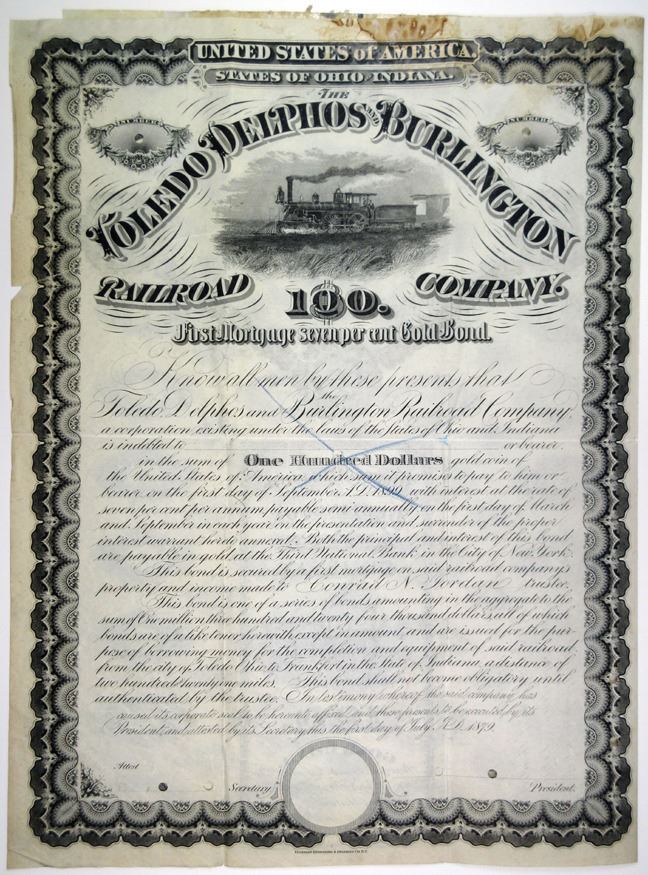 UNITED STATES of AMERICA.
STATES OF OHIO AND INDIANA.
THE
NUMBER
NUMBER
TOLEDO DELPHOS AND BURLINGTON
RAILROAD COMPANY.
$100.
First Mortgage seven per cent Gold Bond.
Know all men by these presents that
the
Toledo Delphos and Burlington Railroad Company,
a corporation existing under the laws of the States of Ohio and Indiana
is indebted to or bearer,
in the sum of One Hundred Dollars gold coin of
the United States of America, which sum it promises to pay to him or
bearer on the first day of September A.D. 1899, with interest at the rate of
seven per cent per annum payable semi annually on the first day of March
and September in each year on the presentation and surrender of the proper
interest warrant hereto annexed. Both the principal and interest of this bond
are payable in gold at the Third National Bank in the City of New York.
This bond is secured by a first mortgage on said railroad company's
property and income made to Conrad N. Jordan trustee.
This bond is one of a series of bonds amounting in the aggregate to the
sum of One million three hundred and twenty four thousand dollars all of which
bonds are of a like tenor herewith except in amount and are issued for the pur-
pose of borrowing money for the completion and equipment of said railroad
from the city of Toledo Ohio to Frankfort in the State of Indiana, a distance of
two hundred twenty one miles. This bond shall not become obligatory until
authenticated by the trustee. In testimony whereof the said company has
caused its corporate seal to be hereunto affixed and these presents to be executed by its
President, and attested by its Secretary, this the first day of July A.D. 1879.
Attest
Secretary. President.